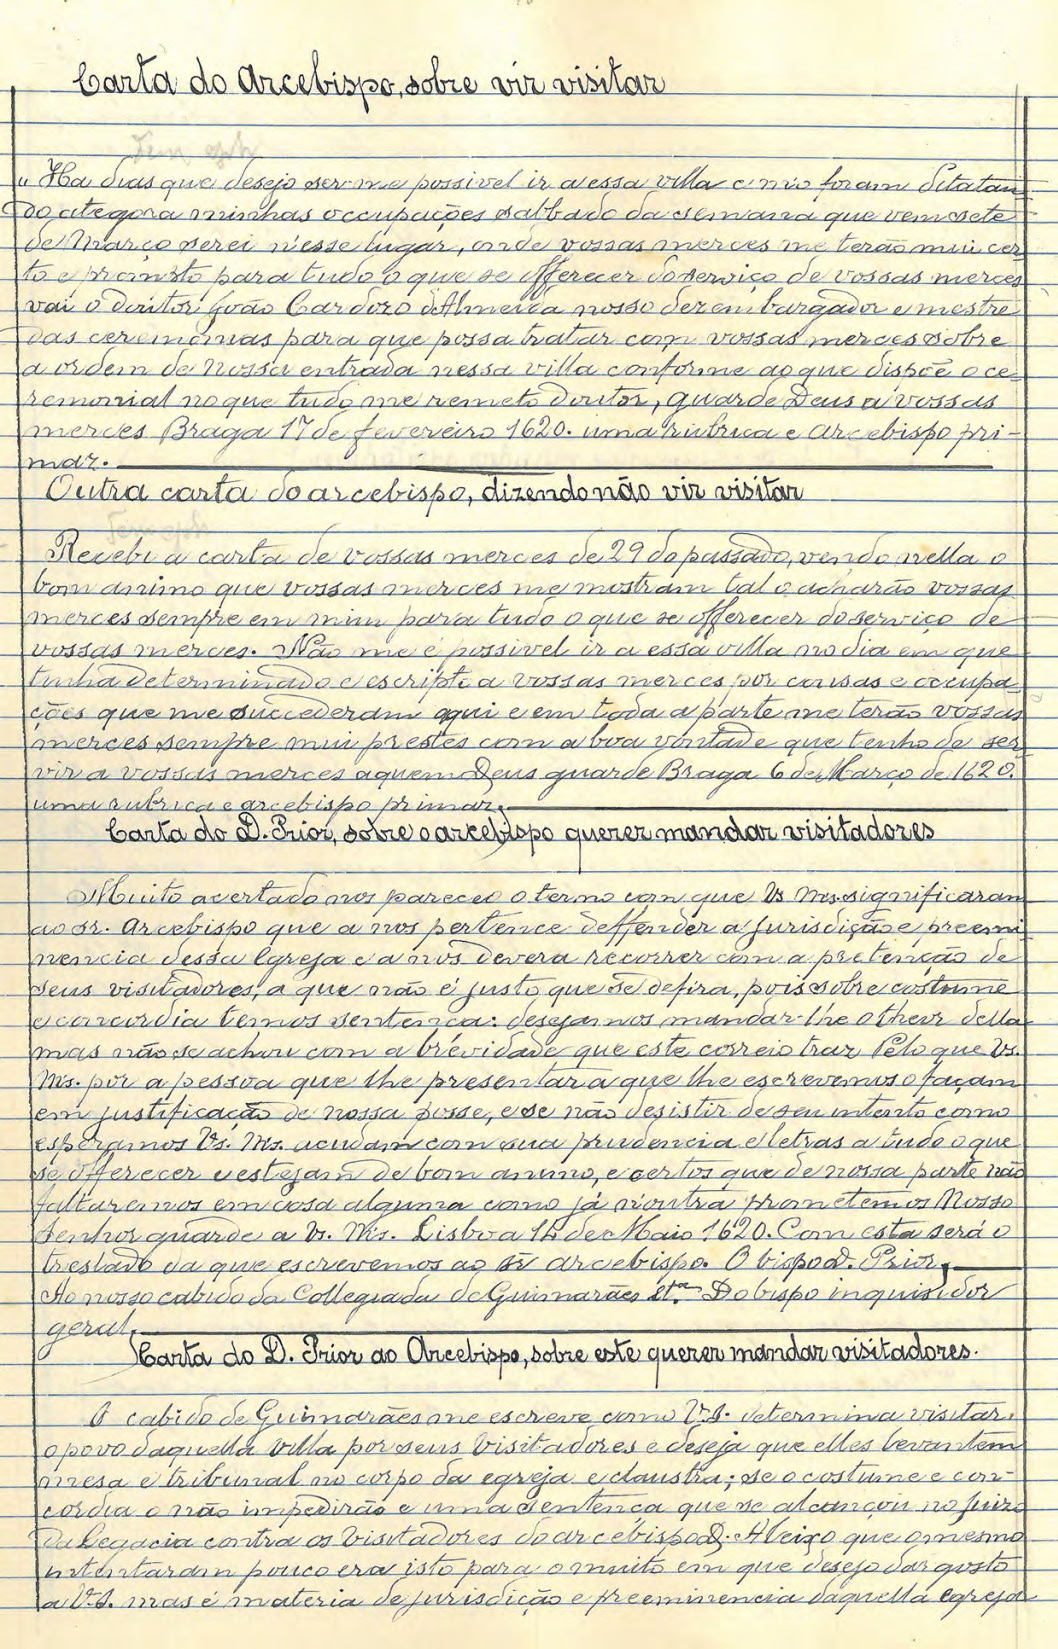 Carta do Arcebispo, sobre vir visitar
" Ha dias que desejo ser-me possivel ir a essa villa e mio foram delatan
do ategora minhas occupações sabbado da semana que vem sete
de Março serei n'esse lugar, onde vossas merces me terão mui cer
to e prompto para tudo o que se offerecer do serviço de vossas merces
vai o doutor João Cardozo d'Almeida nosso dezembargador e mestre
das ceremonias para que possa tratar com vossas merces sobre
a ordem de nossa entrada nessa villa conforme ao que dispõe o ce
remonial no que tudo me remeto doutor, guarde Deus a vossas
merces Braga 17 de fevereiro 1620. uma rubrica e Arcebispo pri-
maz.
Outra carta do arcebispo, dizendo não vir visitar
Recebi a carta de vossas merces de 29 do passado, vendo nella o
bom animo que vossas merces me mostram tal o acharão vossas
merces sempre em mim para tudo o que se offerecer do serviço de
vossas merces. Não me é possivel ir a essa villa no dia em que
tinha determinado e escripto a vossas merces por causas e occupa-
ções que me succederam aqui e em toda a parte me terão vossas
merces sempre mui prestes com a boa vontade que tenho de ser
vir a vossas merces a quem Deus guarde Braga 6 de Março de 1620.
uma rubrica e arcebispo primaz.
Carta do D. Prior, sobre o arcebispo querer mandar visitadores
Muito acertado nos pareceu o termo com que Vs Ms. significaram
ao sr. Arcebispo que a nos pertence deffender a Jurisdição e preemi
nencia dessa Egreja e a nós devera recorrer com a pretenção de
seus visitadores, a que não é justo que se defira, pois sobre costume
e concordia temos sentença: desejamos mandar-lhe o theor della
mas não se achou com a brevidade que este correio traz Pelo que Vs.
Ms. por a pessoa que lhe presentar a que lhe escrevemos o façam
em justificação de nossa posse, e se não desistir de seu intento como
esperamos Vs. Ms. acudam com sua prudencia e letras a tudo o que
se offerecer e estejam de bom animo, e certos que de nossa parte não
faltaremos em cosa alguma como já n'outra prometemos Nosso
Senhor guarde a Vs. Ms. Lisboa 14 de Maio 1620. Com esta será o
treslado da que escrevemos ao sr arcebispo. O bispo D. Prior,
Ao nosso cabido da Collegiada de Guimarães Et.ª Do bispo inquisidor
geral.
Carta do D. Prior ao Arcebispo, sobre este querer mandar visitadores.
O cabido de Guimarães me escreve como V.S. determina visitar,
o povo daquella villa por seus Visitadores e deseja que elles levantem
mesa e tribunal no corpo da egreja e claustra; se o costume e con-
cordia o não impedirão e uma sentença que se alcançou no Juizo
da Legacia contra os Visitadores do arcebispo D. Aleixo que o mesmo
intentaram pouco era isto para o muito em que desejo dar gosto
a V.S. mas é materia de jurisdição e preeminencia daquella egreja